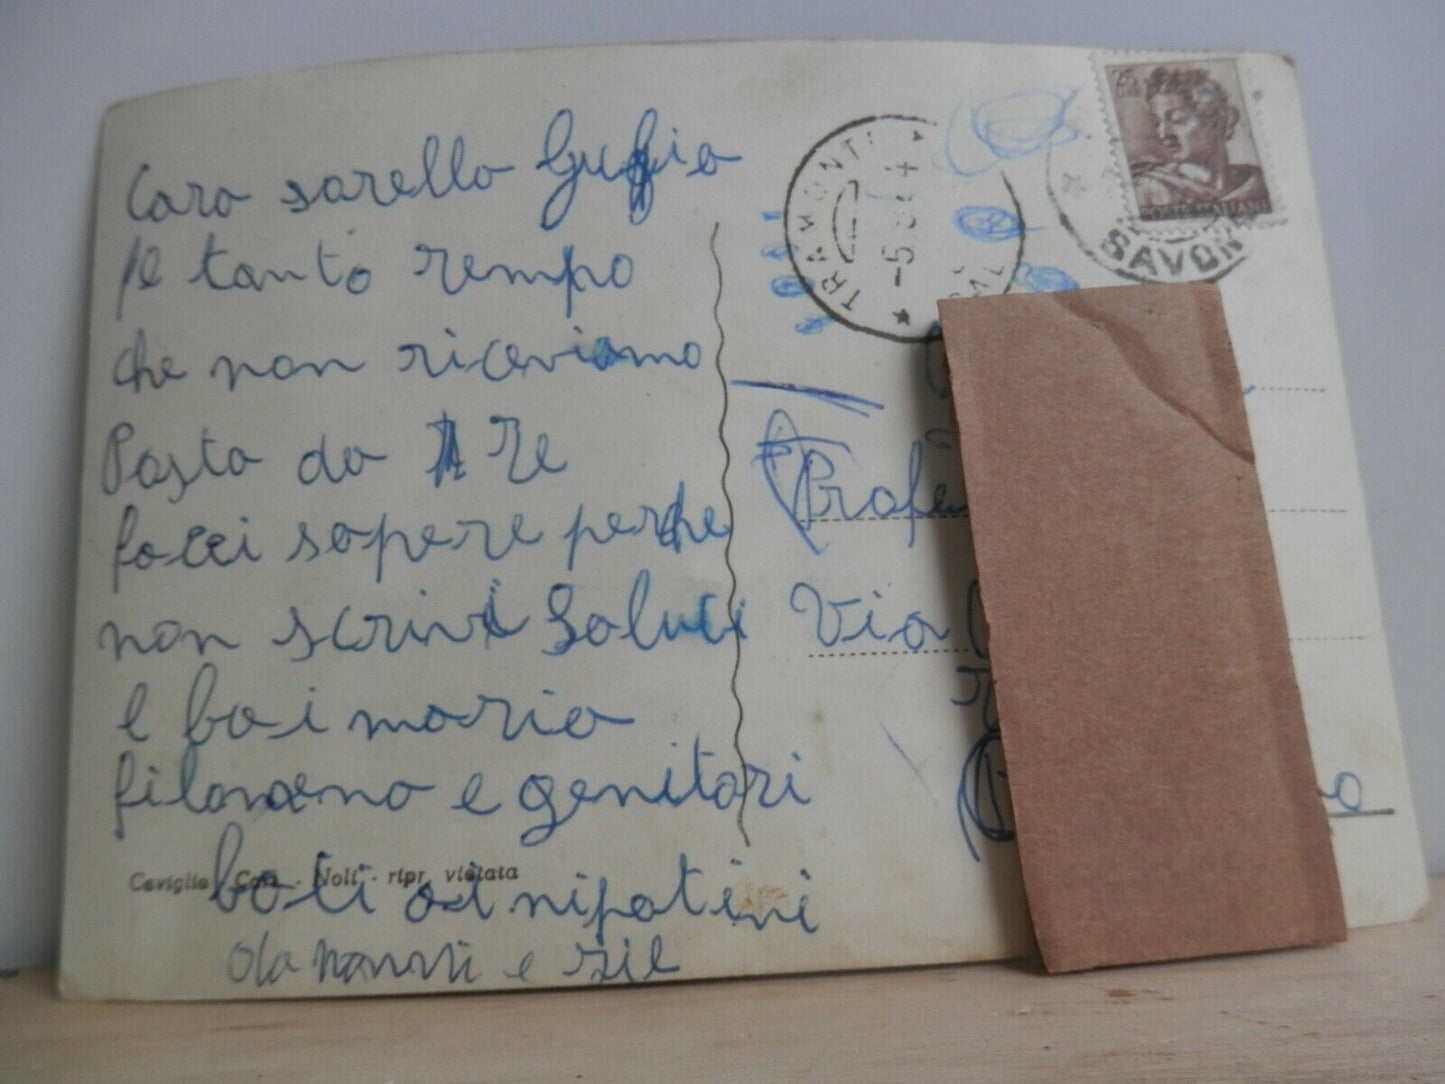 Cara sarella
è tanto rempo
che non riceviamo
Posta da Te
facci sapere perche
non scrivi Saluti
e baci maria
filomena e genitori
bati ai nipotini
da nonni e
Caviglia - Noli - ripr. vietata
TRAMONTI
-5
SAVON
25
POSTE ITALIANE
Via